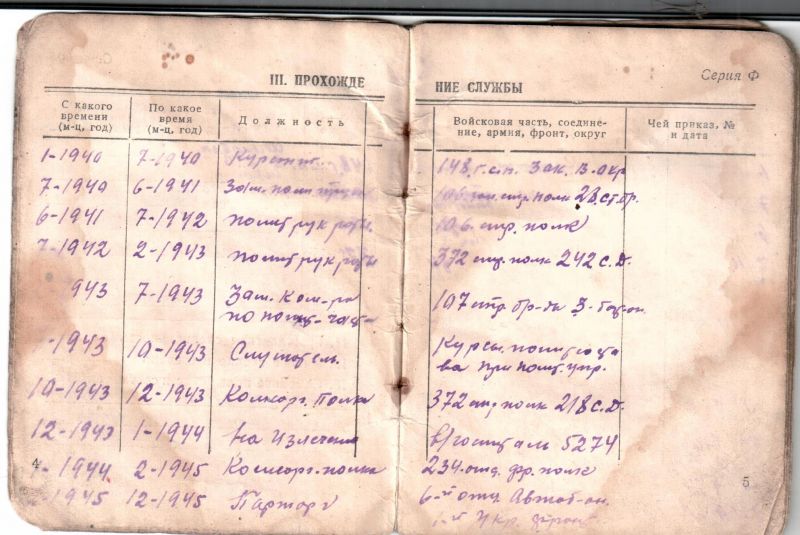 III. ПРОХОЖДЕ
НИЕ СЛУЖБЫ
Серия Ф
С какого времени (м-ц, год)
По какое время (м-ц, год)
Должность
Войсковая часть, соединение, армия, фронт, округ
Чей приказ, № и дата
1-1940 7-1940 Курсант 148 г.с.п. Зак. В. Окр
7-1940 6-1941 Зам. полит 106 полк 28
6-1941 7-1942 политрук роты 106 стр. полк
7-1942 2-1943 политрук роты 372 стр. полк 242 с.д.
943 7-1943 Зам. Ком-ра 107 стр бр-да 3-
по полит-
-1943 10-1943 Слушатель Курсы политсоста
ва при полит. упр.
10-1943 12-1943 Комсорг. Полка 372 стр полк 218 с.д.
12-1943 1-1944 на Излечение в/госпиталь 5274
-1944 2-1945 Комсорг. полка 234 отд. полк
-1945 12-1945 Парторг 6-й отд Автоб-он.
Укр. фронт
4
5